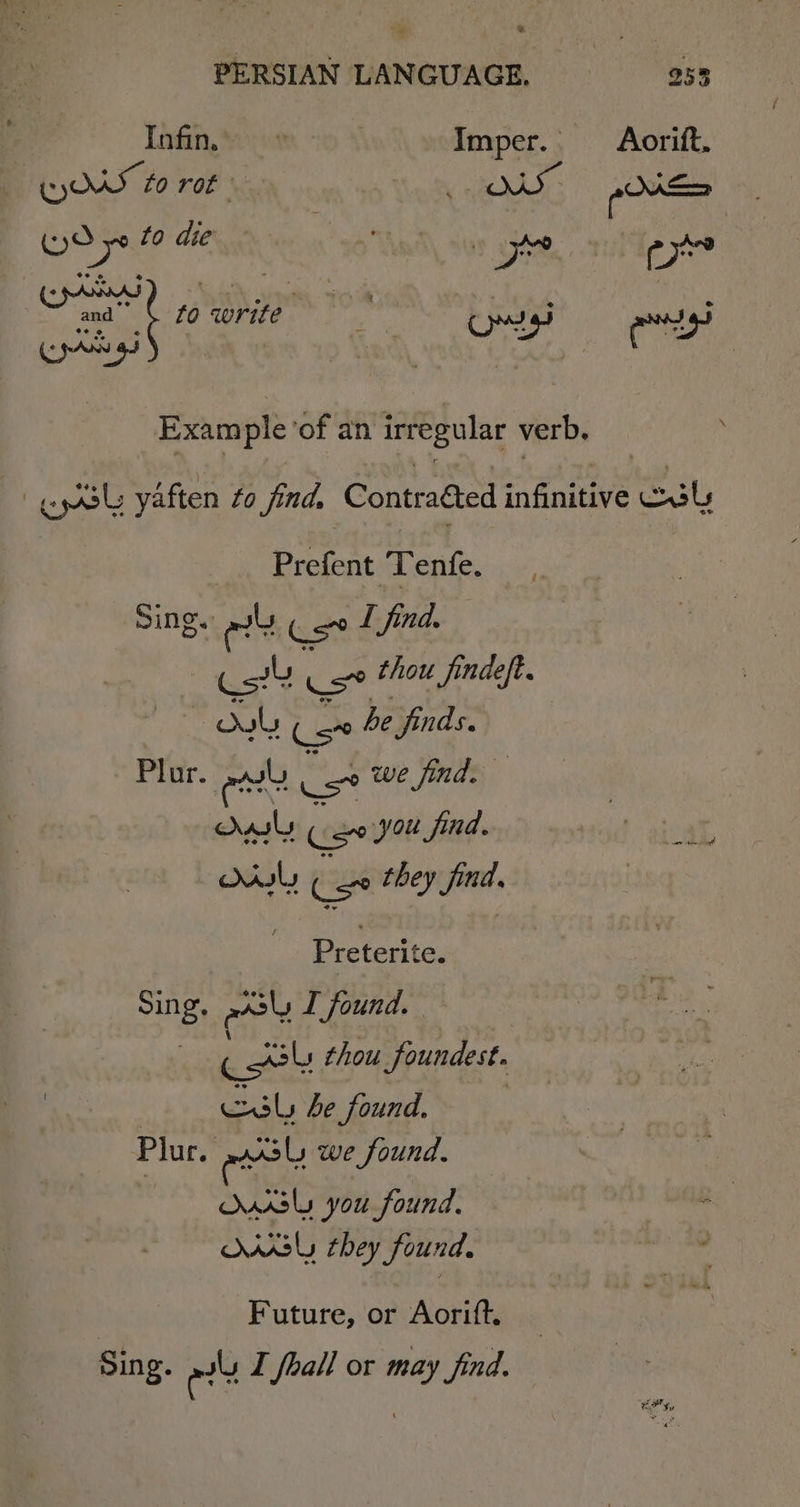 PERSIAN LANGUAGE. 253
Infin. Imper. Aoriſt.
كندن to rot كند كندم
مردن to die مير ميرم
نبشتن
and to write نويس نويسم
نوشتن
Example of an irregular verb.
يافتن yáften to find. Contracted infinitive يافت
Preſent Tenſe.
Sing. مي يابم I find.
مي يابي thou findeſt.
مي يابد he finds.
Plur. مي يابيم we find.
مي يابيد you find.
مي يابند they find.
Preterite.
Sing. يافتم I found.
يافتي thou foundest.
يافت he found.
Plur. يافتيم we found.
يافتيد you found.
يافتند they found.
Future, or Aoriſt.
Sing. يابم I ſhall or may find.